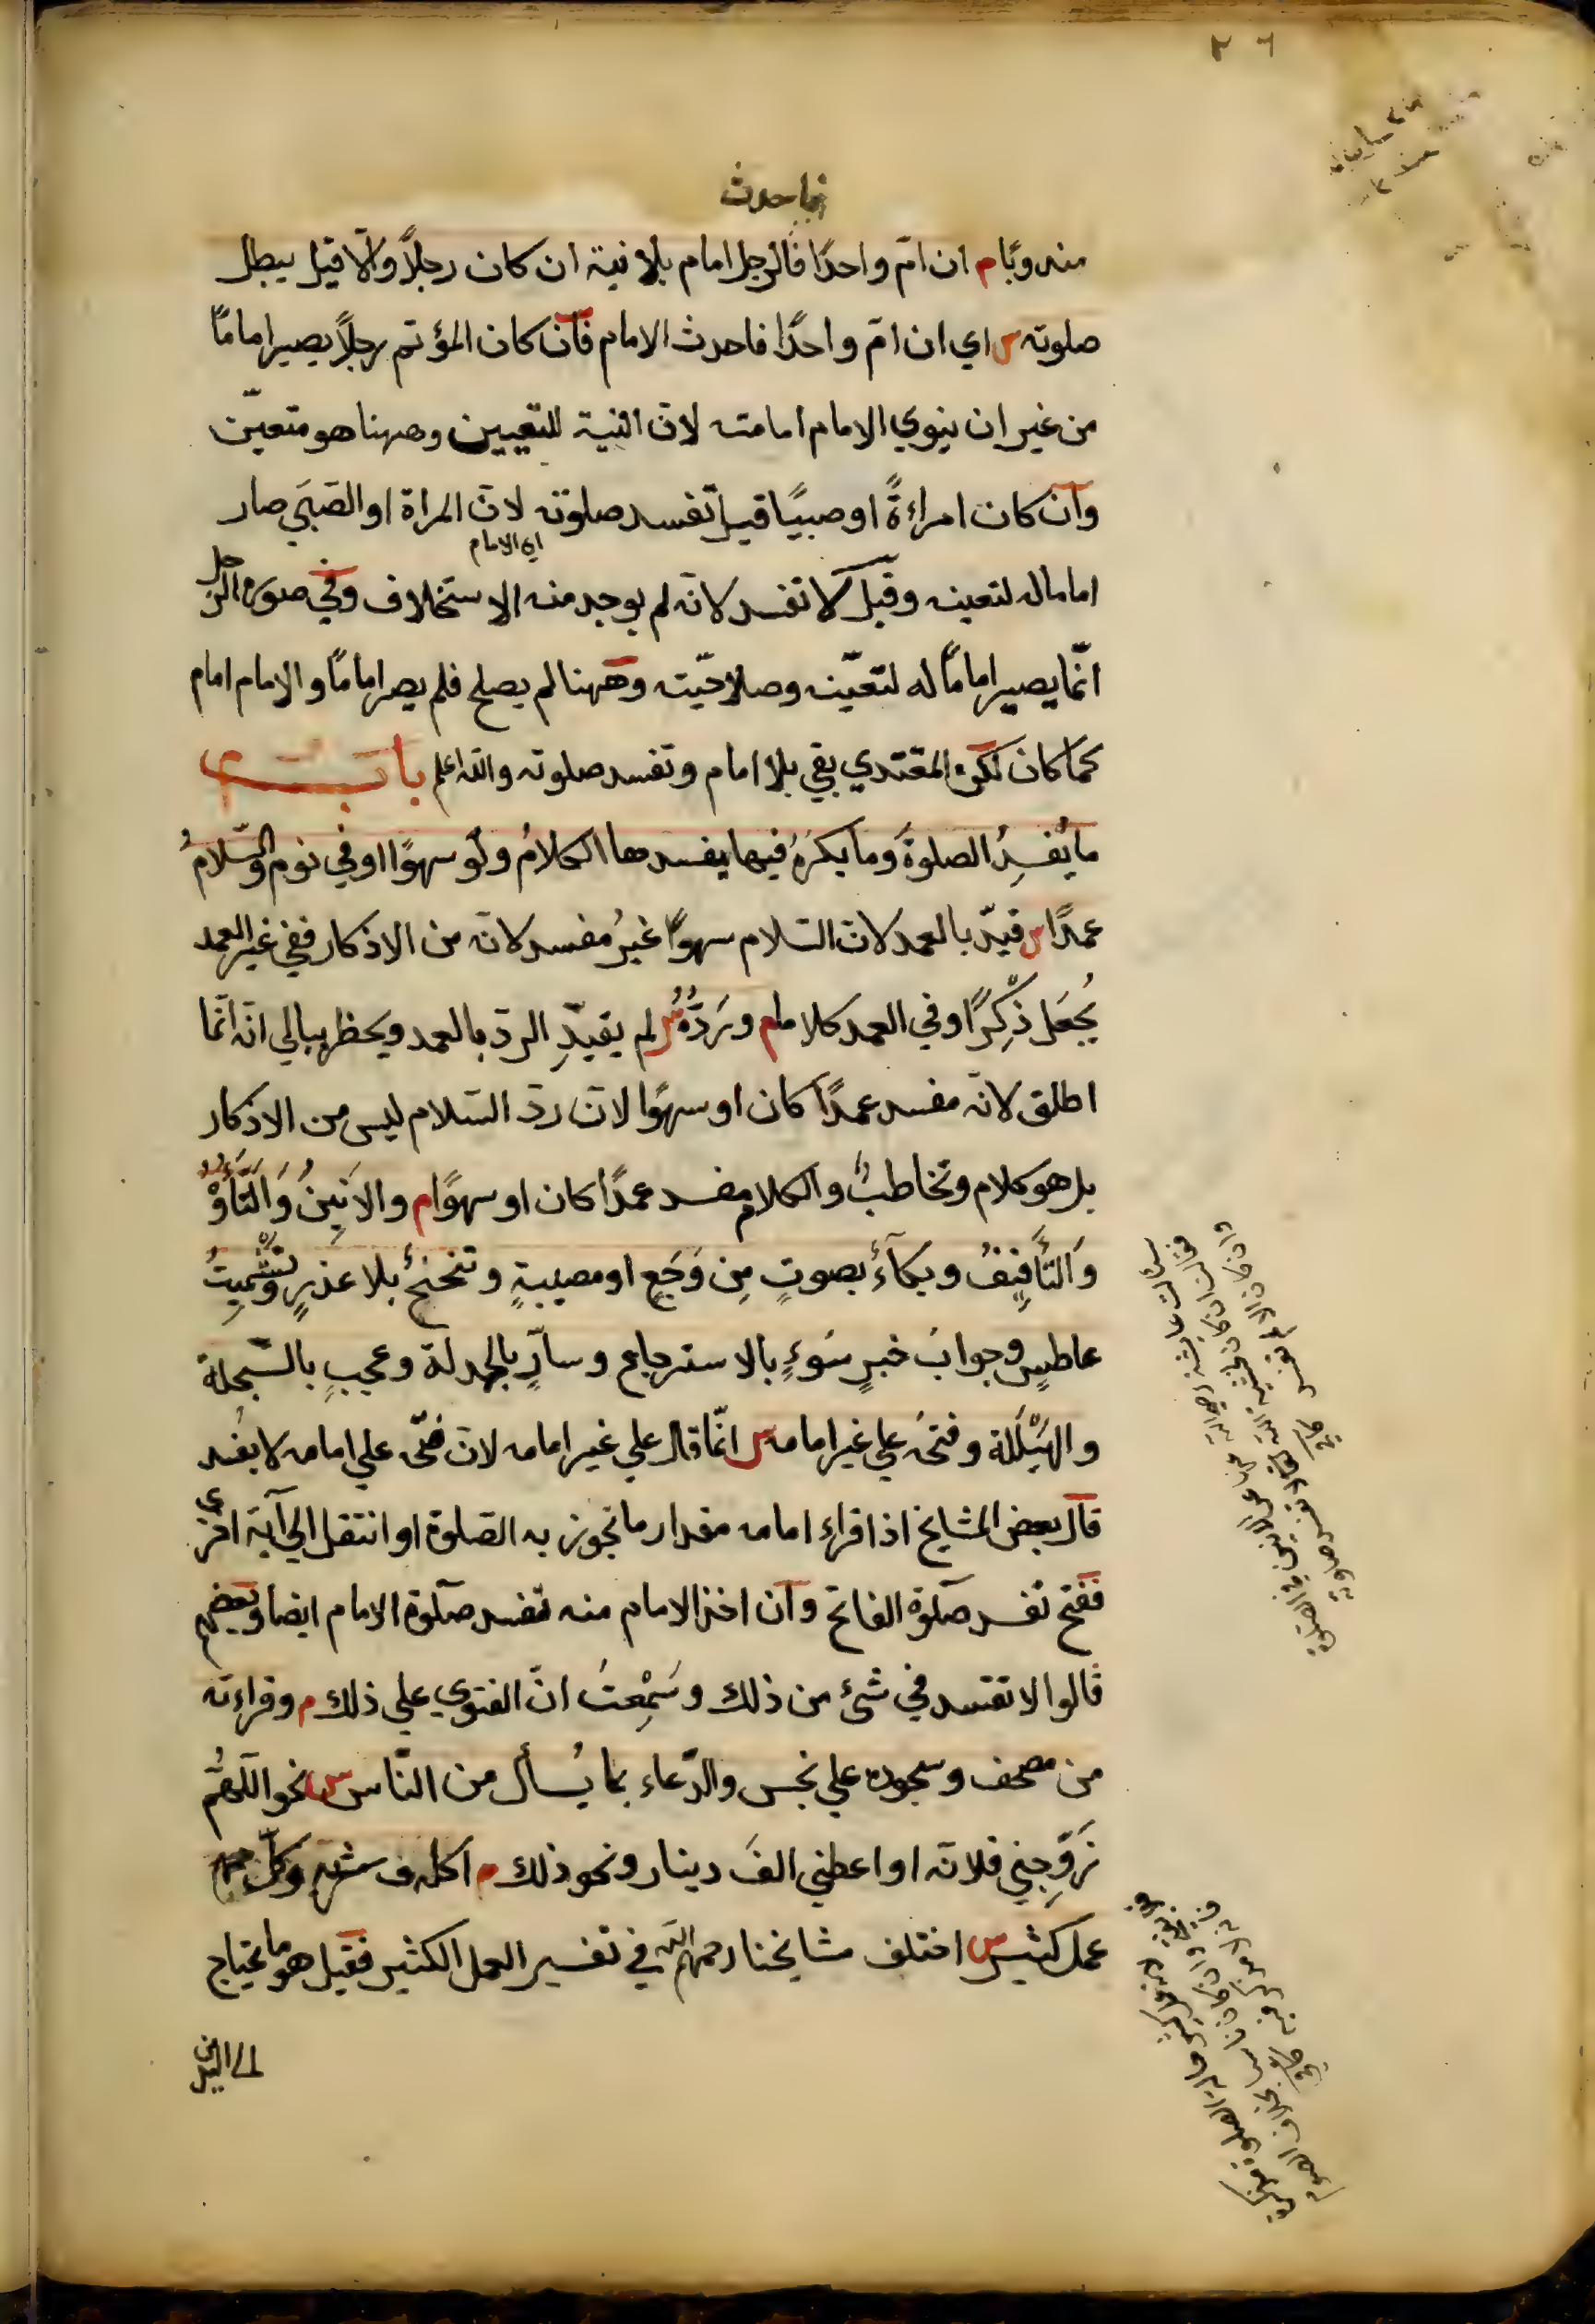 ٢٦
فاحدث
منه ويا م ان امّ واحدًا فالرجل امام بلا نية ان كان رجلاً والّا قيل يبطل
صلوته س اي ان امّ واحدًا فاحدث الامام فان كان المؤتم رجلاً يصير امامًا
من غير ان ينوي الامام امامته لانّ النية للتعيين وههنا هو متعيّن
وان كان امراءةً او صبيًا قيل تفسد صلوته لانّ المراة او الصَبيّ صار
اي الامام
اماماله لتعينه وقيل لا تفسد لانّه لم يوجد منه الاستخلاف وفي صورة الرجل
انّما يصير امامًا له لتعيّنه وصلاحيّته وههنا لم يصلح فلم يصر امامًا والامام امام
كما كان لكن المقتدي بقي بلا امام وتفسد صلوته والله اعلم باب
ما يُفسِدُ الصلوةَ وما يكرَهُ فيها يفسدها الكلامُ ولو سهوًا او في نوم والسّلامُ
عمدًا س قيّد بالعمد لانّ السّلام سهوًا غيرُ مفسد لانّه من الاذكار ففي غير العمد
يُجعَل ذِكْرًا وفي العمد كلاما م وَرَدُّهُ س لم يقيّدِ الردّ بالعمد ويخطر ببالي انّه انّما
اطلق لانّه مفسد عمدًا كان او سهوًا لانّ ردّ السّلام ليس من الاذكار
بل هو كلام وتخاطبٌ والكلام مفسد عمدًا كان او سهوًا م والانينُ وَالتَّأَوُّهُ
وَالتَّأفيفُ وبكآءٌ بصوتٍ مِن وَجَعٍ او مصيبةٍ وتنحنحٌ بلا عذرٍ وتَشْمِيتُ
عاطسٍ وجوابُ خبرٍ سَوءٍ بالاسترجاع وسارٍّ بالحمدلة وعجبٍ بالسّبحلة
والهَيْلَلة وفتحُه علي غير امامه س انّما قال علي غير امامه لانّ فتحَه علي امامه لا يفسد
قال بعض المشايخ اذا قراء امامه مقدار ما تجوز به الصلوة او انتقل الي آية اخرى
ففتح تفسد صلوة الفاتح وان اخذ الامام منه تفسد صلوة الامام ايضا وبعضهم
قالوا لا تفسد في شئ من ذلك وسَمِعْتُ انّ الفتوي علي ذلك م وقراءته
من مصحف وسجوده علي نجس والدّعاء بما يُسأل من النّاس س نحو اللّهُمّ
زَوِّجني فلانه او اعطني الفَ دينار ونحو ذلك م اكله وشربه وكلّ
عمل كثير س اختلف مشايخنا رحمهم الله في تفسير العمل الكثير فقيل هو ما يحتاج
الي اليدين